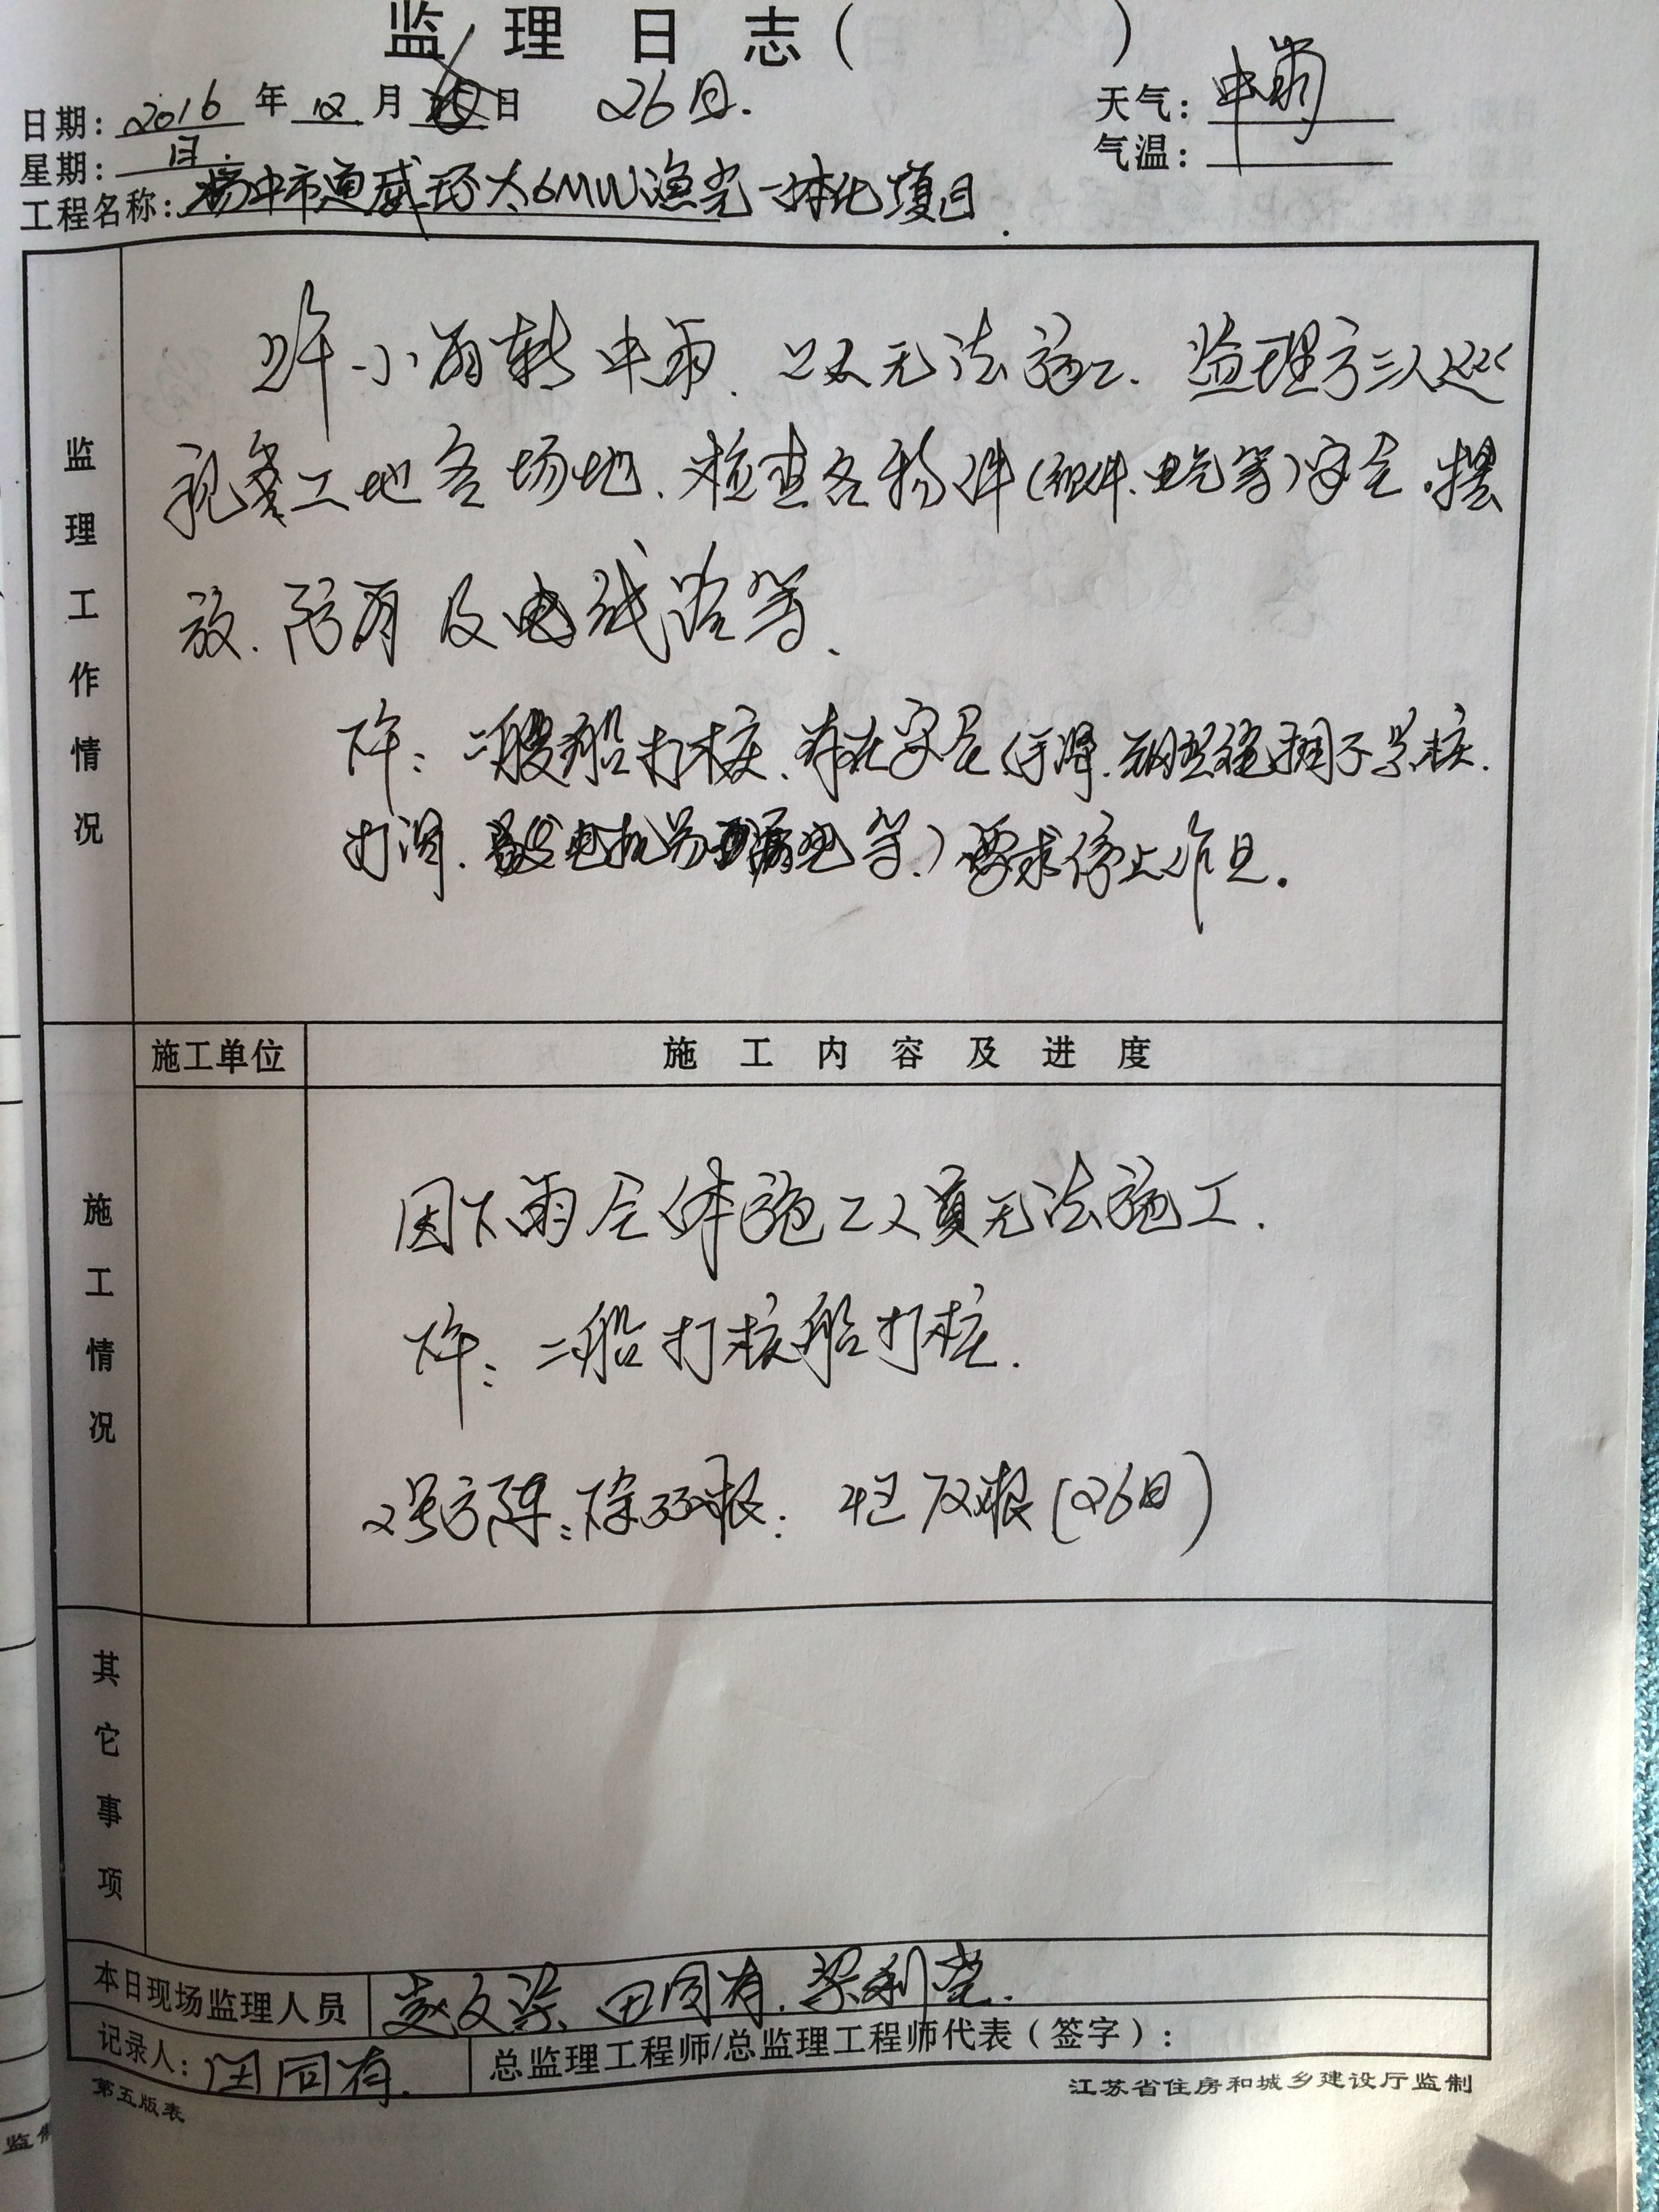 监理日志( )
日期: 2016 年 12 月 日 26日.
天气: 中雨
星期: 日.
气温:
工程名称: 扬中市通威 太6MW渔光一体化项目
监理工作情况
上午小雨转中雨. 无法施工. 监理方三人巡
视 工地各场地. 检查各物件(组件.电气等)安全.摆
放.防雨及电线路等.
下午: 二 船打桩.存在安全(手 . 钢丝绳 桩.
打 . 发电机 漏电等.)要求停止作业.
施工单位
施工内容及进度
施工情况
因下雨全体施工人员无法施工.
下午: 二船打桩船打桩.
2号方阵: 根. 根(26日)
其它事项
本日现场监理人员 赵文 . 田同有. 梁利 .
记录人: 田同有.
总监理工程师/总监理工程师代表(签字):
第五版表
江苏省住房和城乡建设厅监制
监制